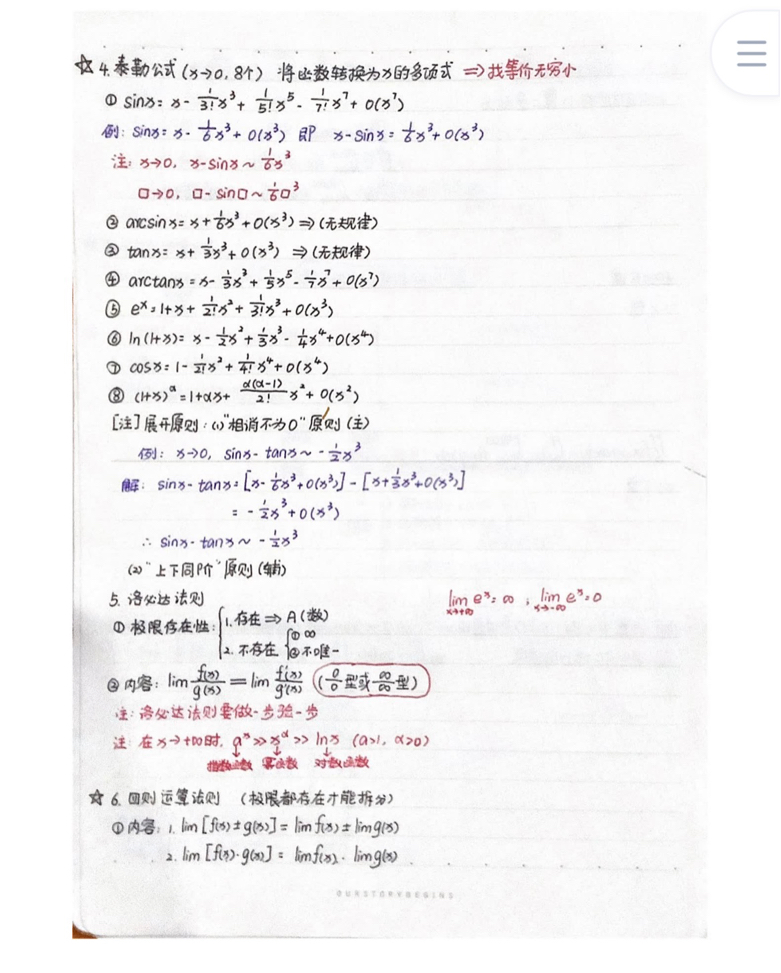 ☆ 4. 泰勒公式 (x→0, 8个) 将函数转换为x的多项式 ⇒找等价无穷小
① sinx = x - 1/3! x³ + 1/5! x⁵ - 1/7! x⁷ + o(x⁷)
例: sinx = x - 1/6 x³ + o(x³) 即 x - sinx = 1/6 x³ + o(x³)
注: x→0, x - sinx ~ 1/6 x³
□→0, □ - sin□ ~ 1/6 □³
② arcsinx = x + 1/6 x³ + o(x³) ⇒ (无规律)
③ tanx = x + 1/3 x³ + o(x³) ⇒ (无规律)
④ arctanx = x - 1/3 x³ + 1/5 x⁵ - 1/7 x⁷ + o(x⁷)
⑤ eˣ = 1 + x + 1/2! x² + 1/3! x³ + o(x³)
⑥ ln(1+x) = x - 1/2 x² + 1/3 x³ - 1/4 x⁴ + o(x⁴)
⑦ cosx = 1 - 1/2! x² + 1/4! x⁴ + o(x⁴)
⑧ (1+x)^α = 1 + αx + α(α-1)/2! x² + o(x²)
[注] 展开原则: (1) "相消不为0" 原则 (主)
例: x→0, sinx - tanx ~ -1/2 x³
解: sinx - tanx = [x - 1/6 x³ + o(x³)] - [x + 1/3 x³ + o(x³)]
= -1/2 x³ + o(x³)
∴ sinx - tanx ~ -1/2 x³
(2) "上下同阶" 原则 (辅)
5. 洛必达法则
lim x→+∞ eˣ = ∞ ; lim x→-∞ eˣ = 0
① 极限存在性: { 1. 存在 ⇒ A (数)
2. 不存在 { ① ∞
② 不唯一
② 内容: lim f(x)/g(x) = lim f'(x)/g'(x) (0/0 型或 ∞/∞ 型)
注: 洛必达法则要做一步验一步
注: 在 x→+∞时, aˣ >> x^α >> lnx (a>1, α>0)
指数函数 幂函数 对数函数
☆ 6. 四则运算法则 (极限都存在才能拆分)
① 内容: 1. lim [f(x) ± g(x)] = lim f(x) ± lim g(x)
2. lim [f(x)·g(x)] = lim f(x) · lim g(x)
OURSTORYBEGINS